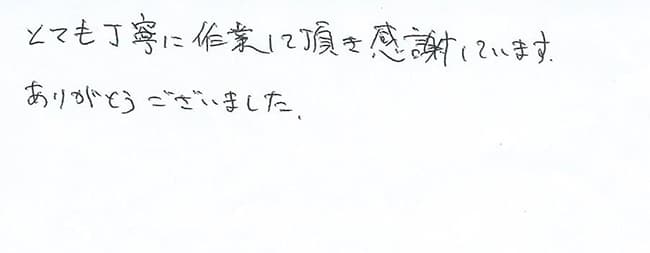 とても丁寧に作業して頂き感謝しています.
ありがとうございました.